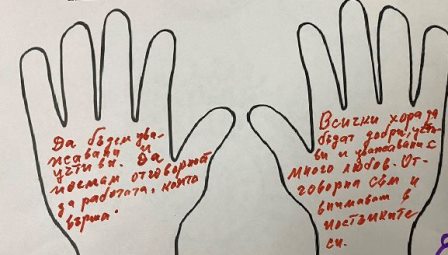 Да бъдем ува-
жавани и
учтиви. Да
поемам отговорност
за работата, която
върша.
Всички хора да
бъдат добри, учти-
ви и уважавани с
много любов. От-
говорна съм и
внимавам в
постъпките
си.